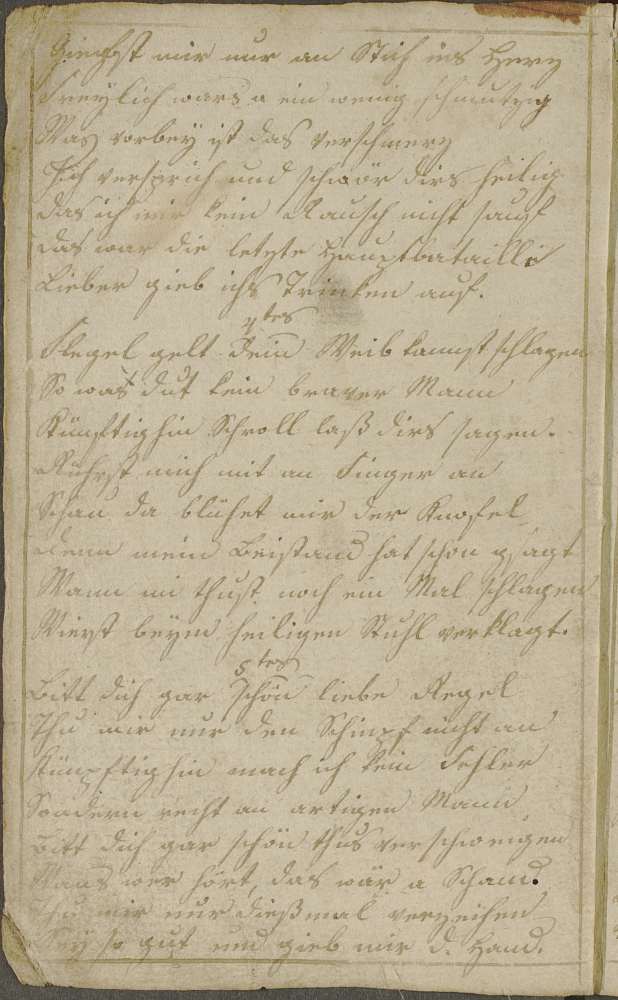 Giebst mir nur an Stich ins Herz
Freylich wars a ein wenig schmutzig
Was vorbey ist das verschmerz
Ich versprich und schwör dirs heilig
das ich mir kein Rausch nicht sauf
das war die letzte Hauptbataille
Lieber gieb ichs Trinken auf.
4tes
Flegel gelt dein Weib kannst schlagen
So was dut kein braver Mann
Künftighin Schroll laß dirs sagen.
Rührst mich mit an Finger an
Schau da blühet mir der Knofel
denn mein Beistand hat schon gsagt
Wann mi thust noch ein Mal schlagen
Wirst beym heiligen Stuhl verklagt.
5tes
Bitt dich gar schön liebe Regel
Thu mir nur den Schimpf nicht an
künftighin mach ich kein Fehler
Sondern recht an artigen Mann
Bitt dich gar schön thus verschweigen
Wans wer hört, das wär a Schand.
Thu mir nur dießmal verzeihen
Sey so gut und gieb mir d. Hand.